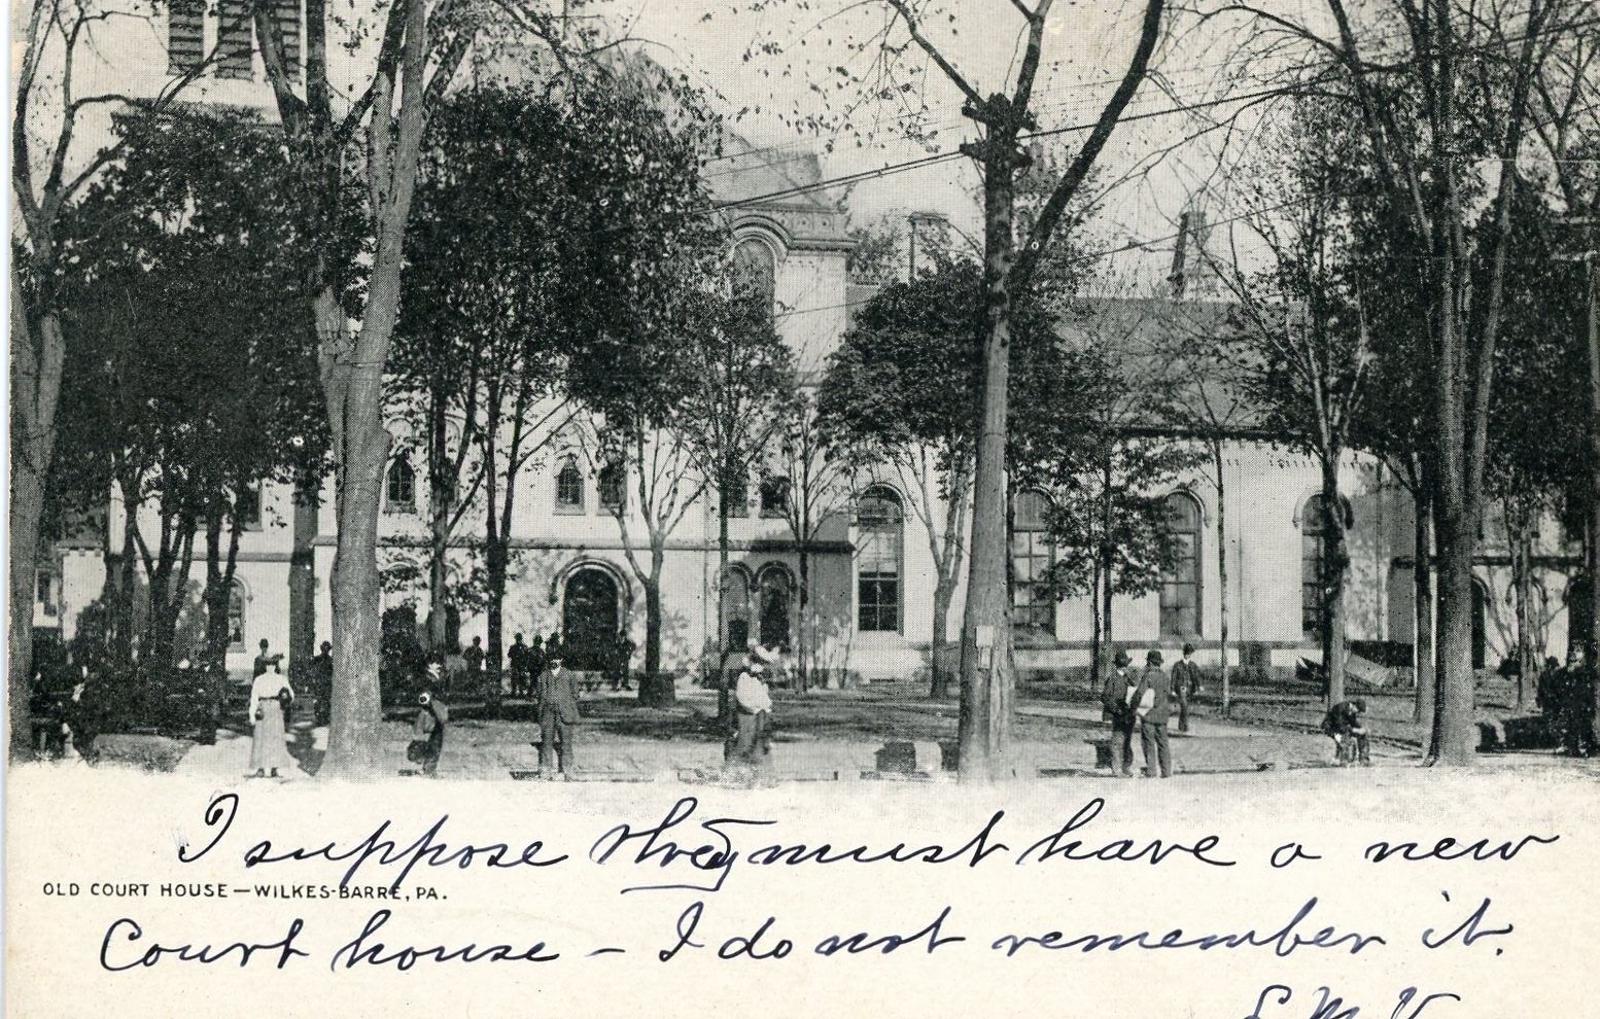 I suppose they must have a new
OLD COURT HOUSE—WILKES-BARRE, PA.
Court house – I do not remember it.